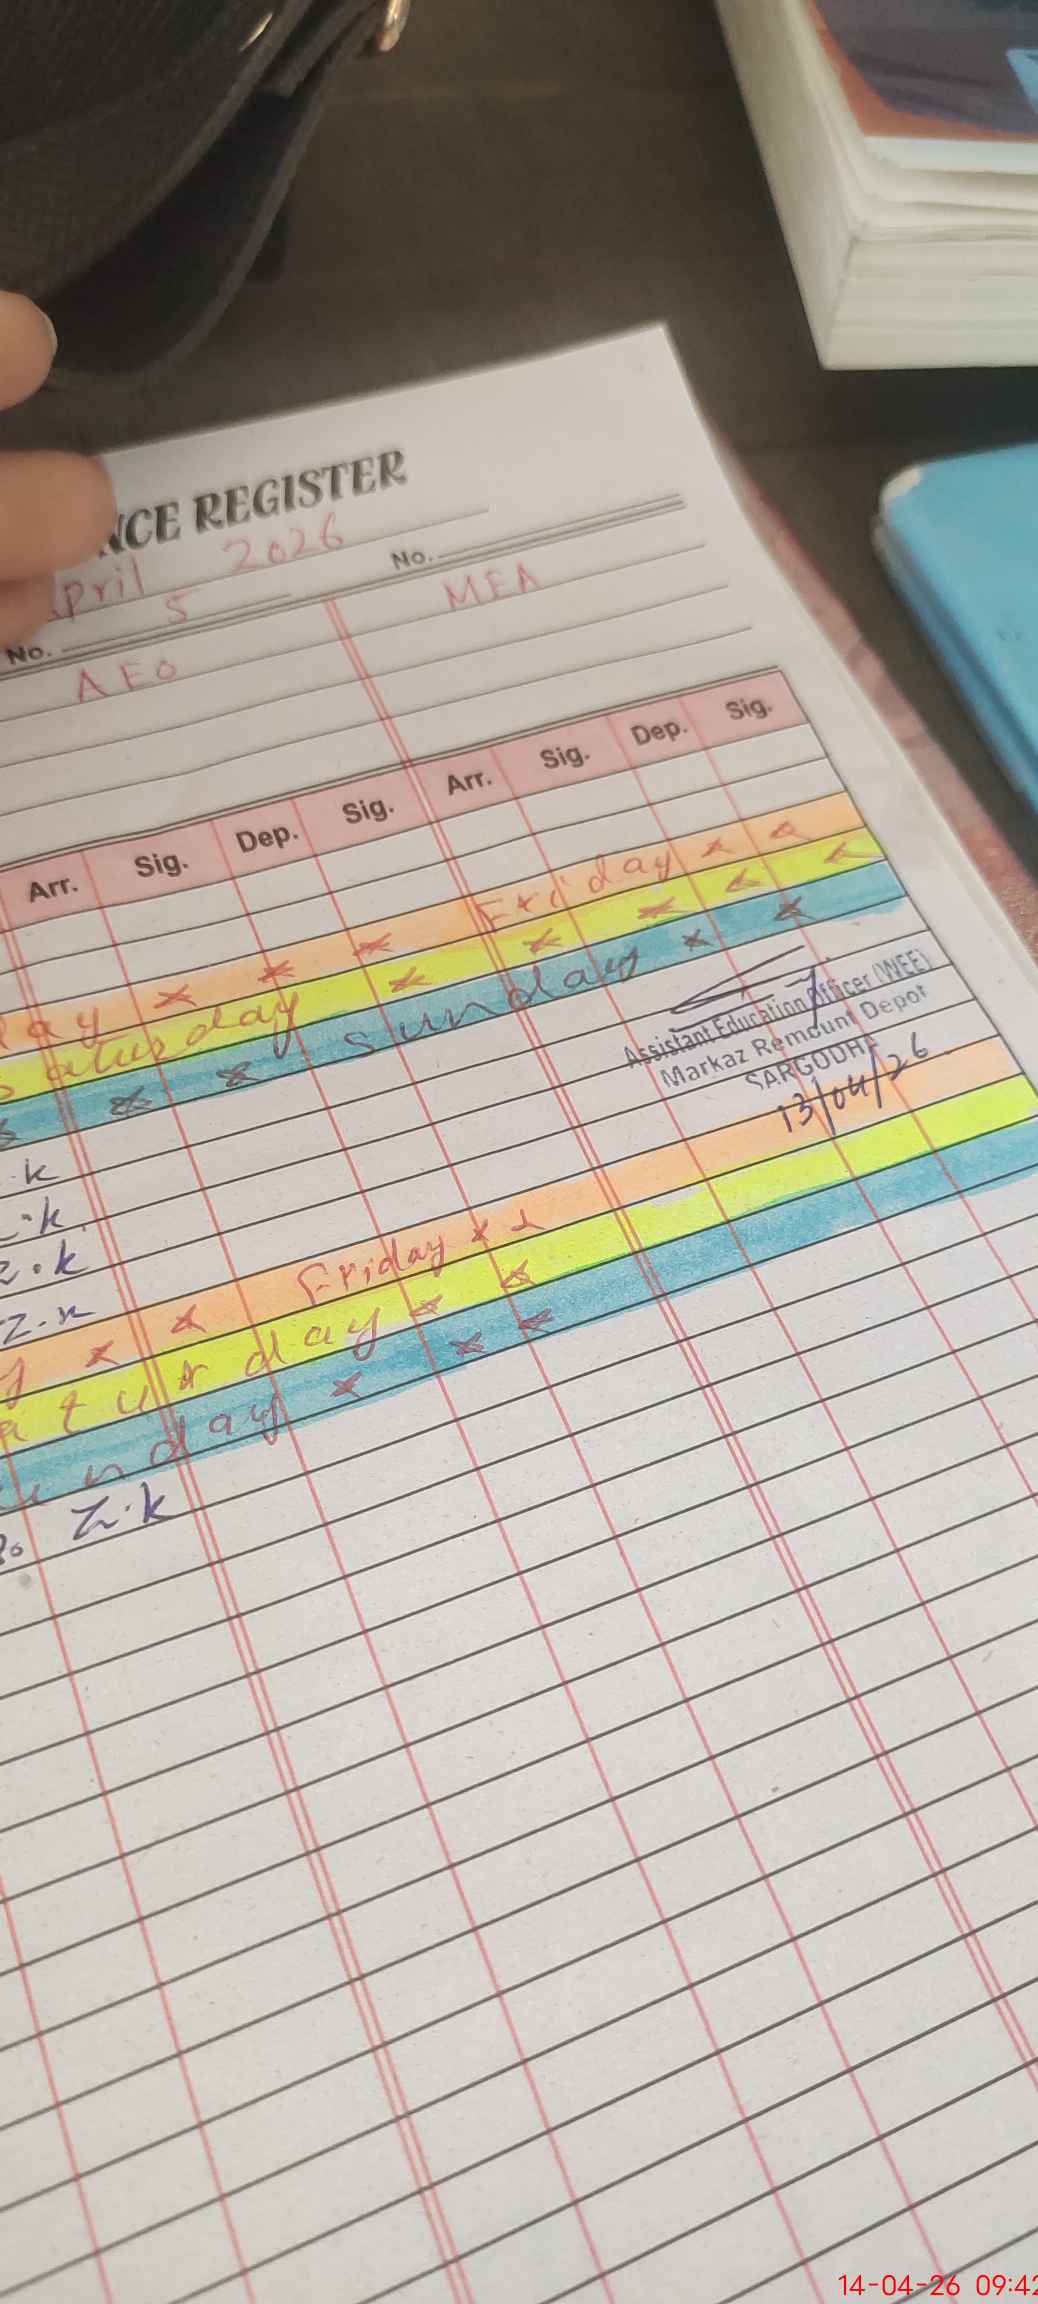 NCE REGISTER
April 2026
No. 5 No.
AEO MEA
Arr. Sig. Dep. Sig. Arr. Sig. Dep. Sig.
day × × × × Friday × ×
Saturday × × × × ×
× × Sunday × ×
Assistant Education Officer (WEE)
Markaz Remount Depot
SARGODHA
13/04/26
.k
Z.k
Z.k
Z.k
y × × Friday × ×
atur day × ×
un day × × ×
Z.k
14-04-26 09:42